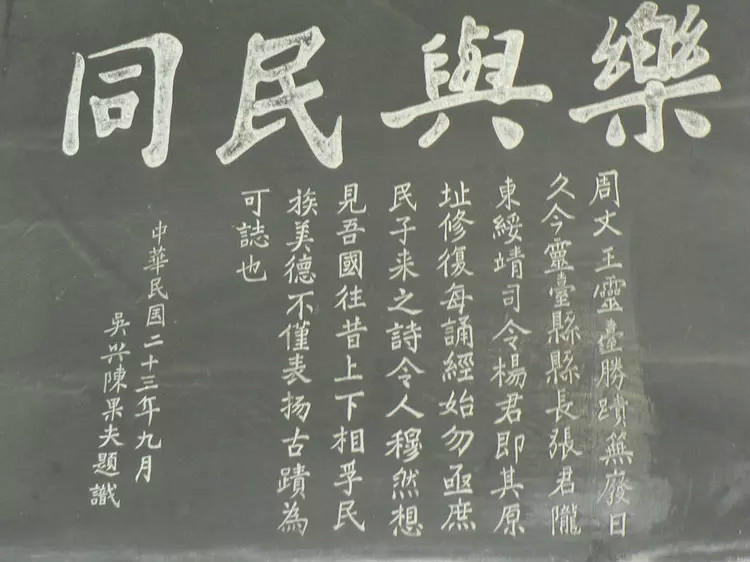 樂與民同
周文王靈臺勝蹟蕪廢日
久今靈臺縣縣長張君隴
東綏靖司令楊君即其原
址修復每誦經始勿亟庶
民子来之詩令人穆然想
見吾國往昔上下相孚民
族美德不僅表扬古蹟為
可誌也
中華民国二十三年九月
吳興陳果夫題識